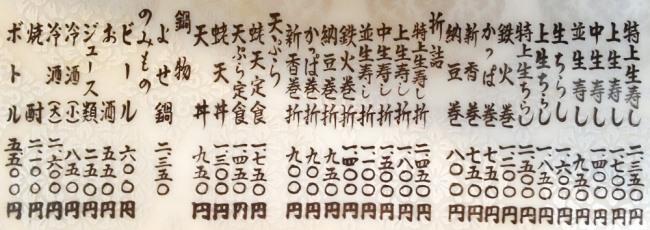 特上生寿し 二三五〇円
上生寿し 一七〇〇円
中生寿し 一四〇〇円
並生寿し 九五〇円
生ちらし 一六〇〇円
上生ちらし 一八五〇円
特上生ちらし 二五〇〇円
鉄火巻 一二〇〇円
かっぱ巻 七五〇円
新香巻 七五〇円
納豆巻 八〇〇円
折詰
特上生寿し折 二四五〇円
上生寿し折 一八〇〇円
中生寿し折 一五〇〇円
並生寿し折 一一〇〇円
鉄火巻折 一四〇〇円
納豆巻折 九五〇円
かっぱ巻折 九〇〇円
新香巻折 九〇〇円
天ぷら
蛯天定食 一七五〇円
天ぷら定食 一四五〇円
蛯天丼 一三〇〇円
天丼 九五〇円
鍋物
よせ鍋 二三五〇円
のみもの
ビール 六〇〇円
お酒 五五〇円
ジュース類 二五〇円
冷酒(小) 八五〇円
冷酒(大) 二六〇〇円
焼酎 二一〇〇円
ボトル 五五〇〇円